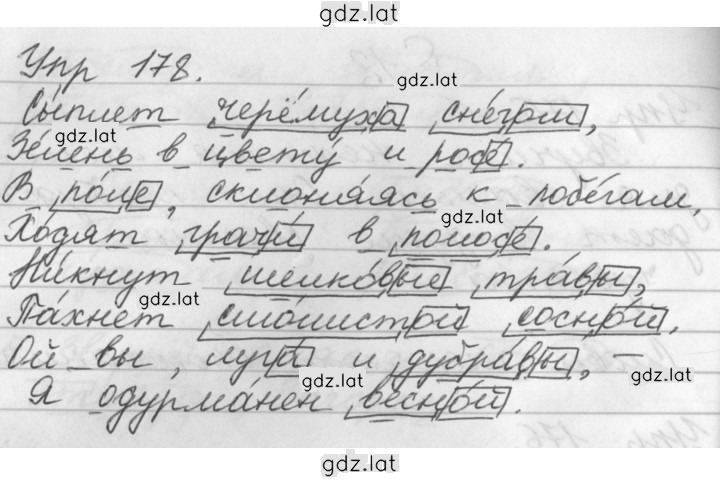 gdz.lat
Упр 178.
gdz.lat
Сыплет черёмуха снегом,
gdz.lat
Зелень в цвету и росе.
В поле, склоняясь к побегам,
gdz.lat
Ходят грачи в полосе.
Никнут шелковые травы,
gdz.lat
Пахнет смолистой сосной.
Ой вы, луга и дубравы, —
gdz.lat
Я одурманен весной.
gdz.lat